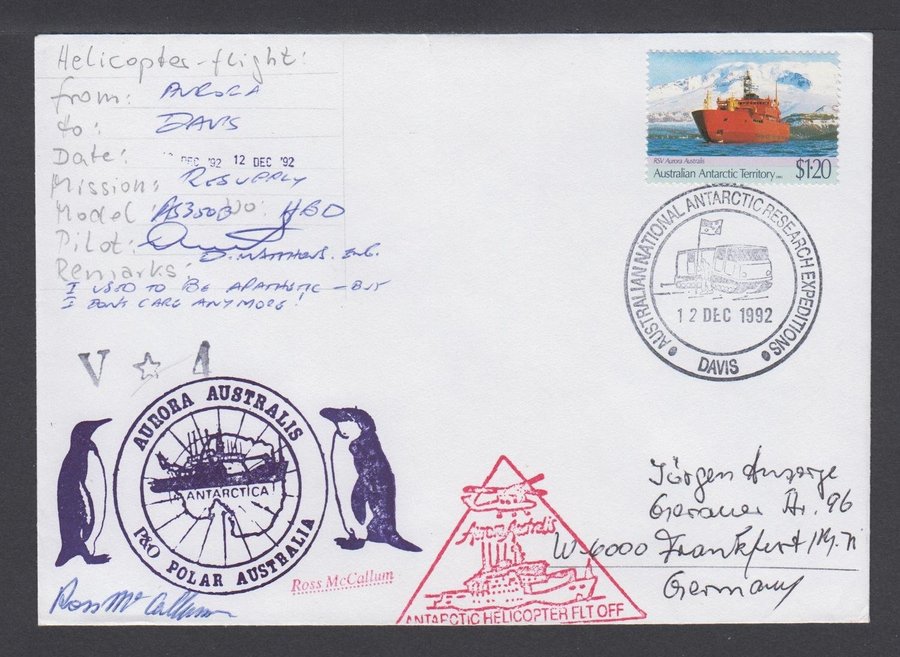 Helicopter-flight:
from: AURORA
to: DAVIS
Date: DEC '92 12 DEC '92
Mission: RESUPPLY
Model: AS350B No: HBD
Pilot:
D. MATTHEWS. ENG.
Remarks:
I USED TO BE APATHETIC - BUT
I DONT CARE ANYMORE!
V ☆ 4
AURORA AUSTRALIS
ANTARCTICA
P&O POLAR AUSTRALIA
Ross McCallum
Ross McCallum
RSV Aurora Australis
Australian Antarctic Territory
$1.20
AUSTRALIAN NATIONAL ANTARCTIC RESEARCH EXPEDITIONS
12 DEC 1992
DAVIS
Aurora Australis
ANTARCTIC HELICOPTER FLT OFF
Jörgen
Gerauer Str. 96
W-6000 Frankfurt/M. 71
Germany